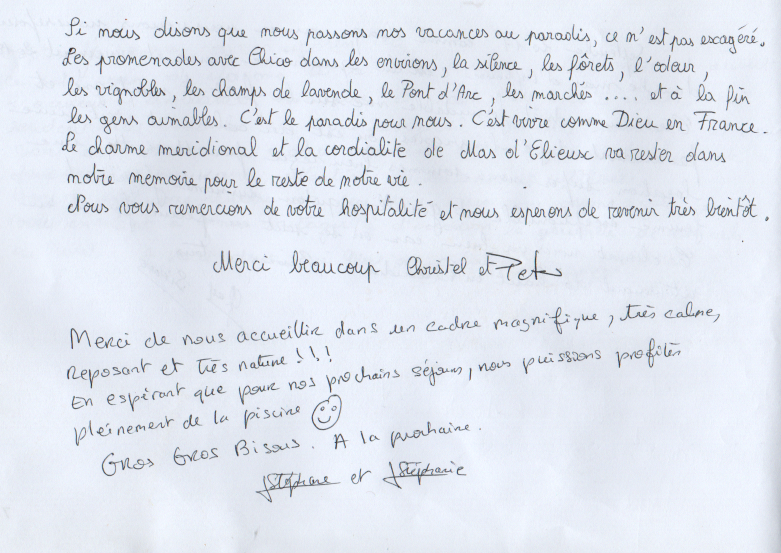 Si nous disons que nous passons nos vacances au paradis, ce n'est pas exagéré.
Les promenades avec Chico dans les environs, la silence, les fôrets, l'odeur,
les vignobles, les champs de lavende, le Pont d'Arc, les marchés .... et à la fin
les gens aimables. C'est le paradis pour nous. C'est vivre comme Dieu en France.
Le charme meridional et la cordialité de Mas d'Elieux va rester dans
notre memoire pour le reste de notre vie.
Nous vous remercions de votre hospitalité et nous esperons de revenir très bientôt.
Merci beaucoup Christel et Peter
Merci de nous accueillir dans un cadre magnifique, très calme,
reposant et très nature !!!
En espérant que pour nos prochains séjours, nous puissions profiter
pleinement de la piscine
Gros Gros Bisous. A la prochaine.
Stéphane et Stéphanie